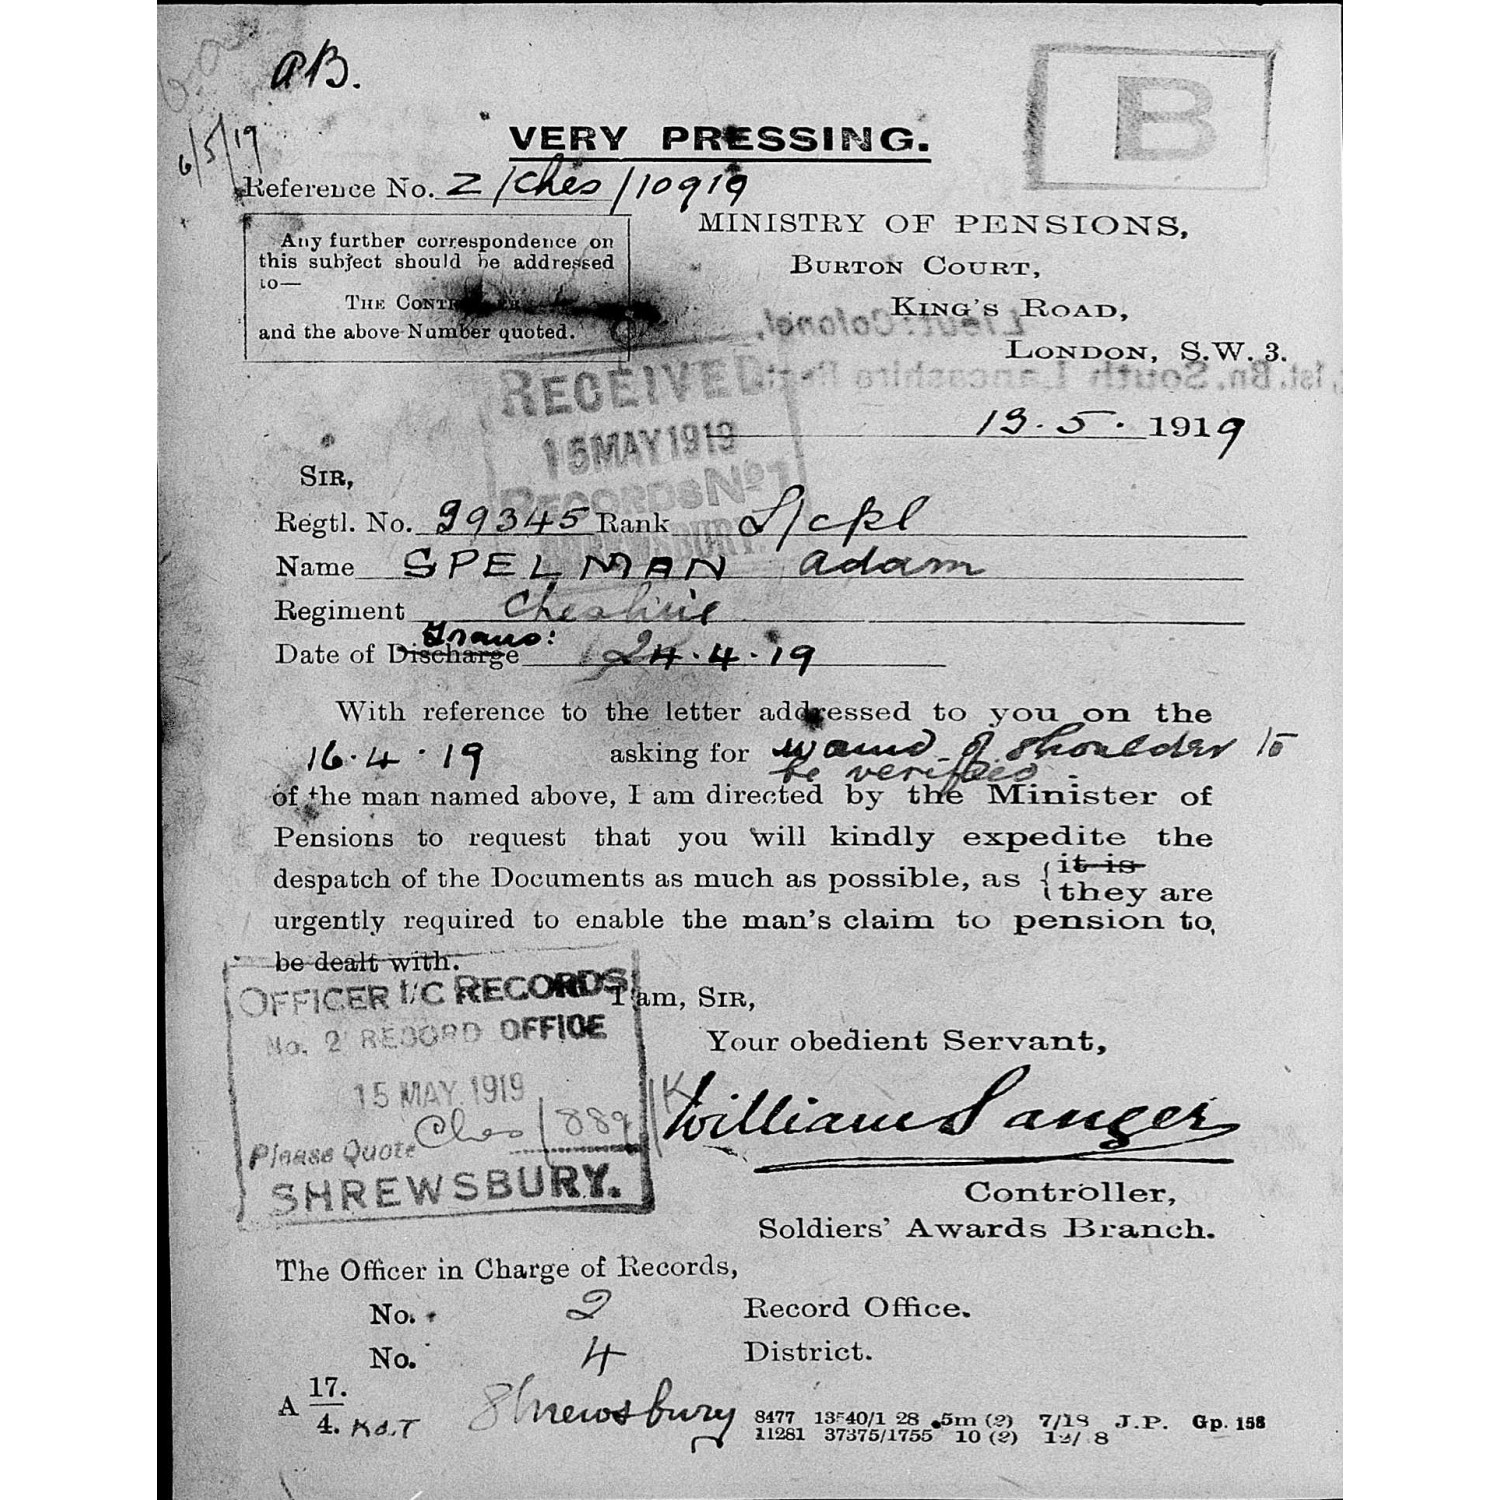 AB.
B
6/5/19
VERY PRESSING.
Reference No. Z/Ches/10919
MINISTRY OF PENSIONS,
BURTON COURT,
KING'S ROAD,
LONDON, S.W. 3.
Any further correspondence on
this subject should be addressed
to—
THE
and the above Number quoted.
Lieut: Colonel,
1st. Bn. South Lancashire Regt
RECEIVED
15 MAY 1919
RECORDS No 1
SHREWSBURY.
13.5.1919
SIR,
Regtl. No. 39345 Rank L/cpl
Name SPELMAN Adam
Regiment Cheshire
Trans:
Date of Discharge 24.4.19
With reference to the letter addressed to you on the
16.4.19 asking for wound of shoulder to
be verified.
of the man named above, I am directed by the Minister of
Pensions to request that you will kindly expedite the
despatch of the Documents as much as possible, as { it is
they are
urgently required to enable the man's claim to pension to
be dealt with.
I am, SIR,
Your obedient Servant,
William Sanger
Controller,
Soldiers' Awards Branch.
OFFICER I/C RECORDS
No. 2 RECORD OFFICE
15 MAY 1919
Please Quote Ches/889/K
SHREWSBURY.
The Officer in Charge of Records,
No. 2 Record Office.
No. 4 District.
Shrewsbury
A 17.
4. Kd.T
8477 13540/1 28 5m (2) 7/18 J.P. Gp. 158
11281 37375/1755 10 (2)